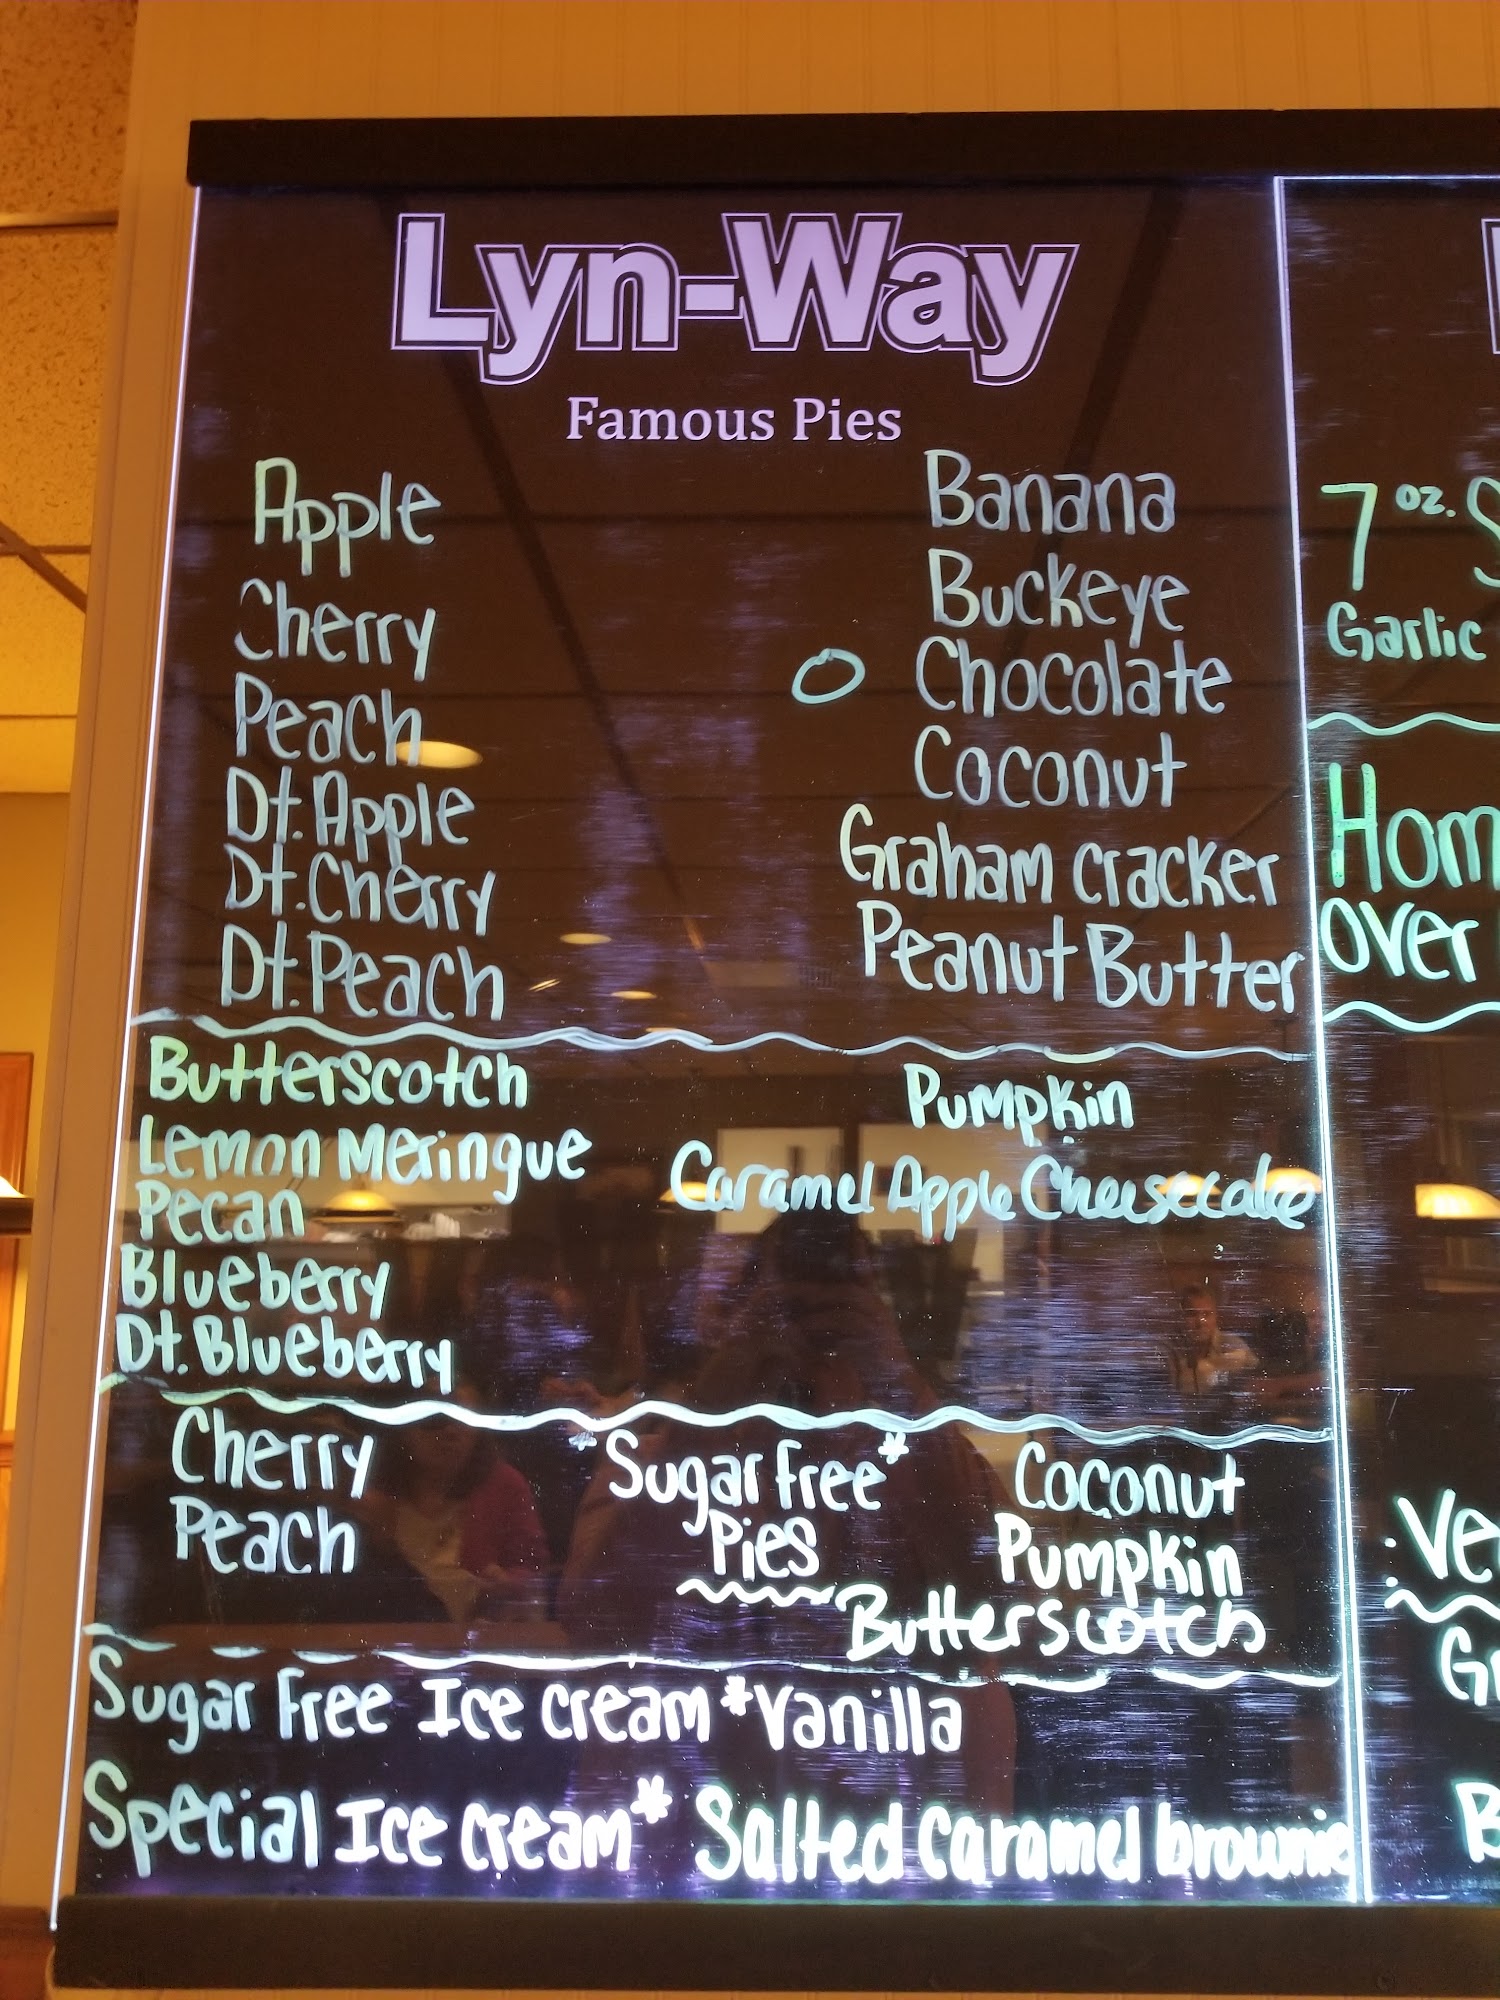 Lyn-Way
Famous Pies
Apple
Cherry
Peach
Dt. Apple
Dt. Cherry
Dt. Peach
Banana
Buckeye
Chocolate
Coconut
Graham cracker
Peanut Butter
Butterscotch
Lemon Meringue
Pecan
Blueberry
Dt. Blueberry
Pumpkin
Caramel Apple Cheesecake
Cherry
Peach
*Sugar Free*
Pies
Coconut
Pumpkin
Butterscotch
Sugar Free Ice Cream *Vanilla
Special Ice Cream* Salted Caramel brownie
7 oz.
Garlic
over